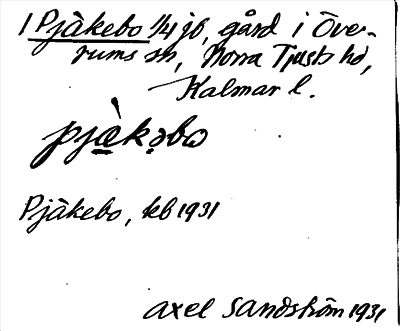 1 Pjàkebo 1/4 jb, gård i Över-
rums sn, Norra Tjusts hd,
Kalmar l.
pjàkəbω
Pjàkebo, kb 1931
Axel Sandström 1931